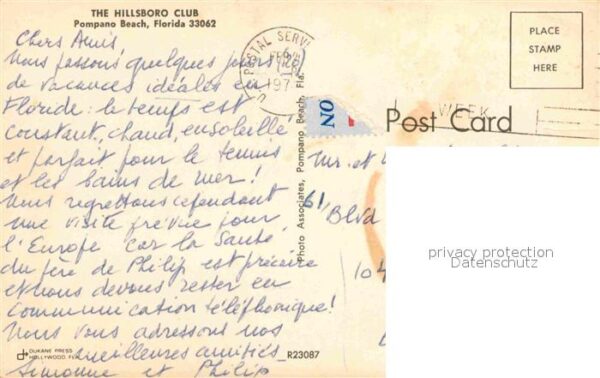 THE HILLSBORO CLUB
Pompano Beach, Florida 33062
Chers Amis,
Nous passons quelques jours
de vacances idéales en
Floride: le temps est
constant, chaud, ensoleillé
et parfait pour le tennis
et les bains de mer!
Nous regrettons cependant
une visite prévue pour
l'Europe car la Santé
du père de Philip est précaire
et nous devons rester en
communication téléphonique!
Nous vous adressons nos
meilleures amitiés
Simonne et Philip
DUKANE PRESS
HOLLYWOOD, FLA.
R23087
Photo Associates, Pompano Beach, Fla.
POSTAL SERVI
197
NO
WEEK
PLACE
STAMP
HERE
Post Card
Mr. et
61,
Blvd
104
privacy protection
Datenschutz